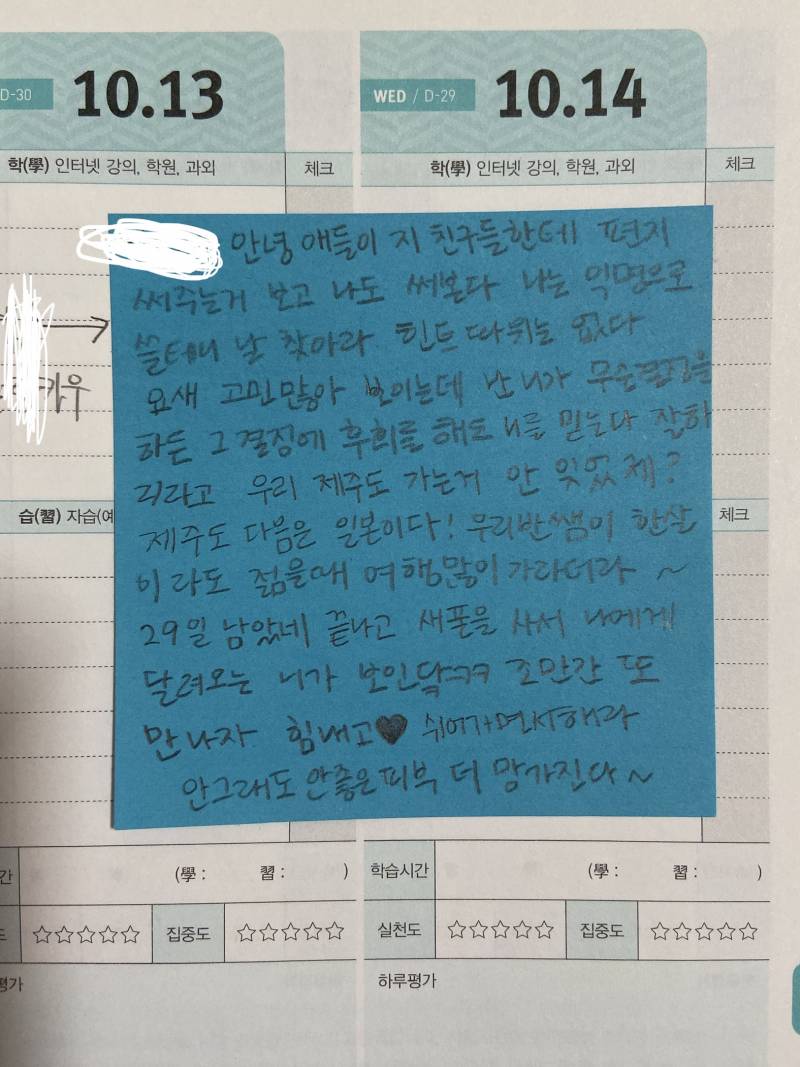 D-30 10.13
WED / D-29 10.14
학(學) 인터넷 강의, 학원, 과외 체크
학(學) 인터넷 강의, 학원, 과외 체크
안녕 애들이 지 친구들한테 편지
써주는거 보고 나도 써본다 나는 익명으로
쓸테니 날 찾아라 힌트 따위는 없다
요새 고민많아 보이는데 난 니가 무슨결정을
하든 그 결정에 후회를 해도 너를 믿는다 잘하
리라고 우리 제주도 가는거 안 잊었제?
제주도 다음은 일본이다! 우리반쌤이 한살
이라도 젊을때 여행많이 가라더라 ~
29일 남았네 끝나고 새폰을 사서 나에게
달려오는 니가 보인닼ㅋㅋ 조만간 또
만나자 힘내고♥ 쉬어가면서해라
안그래도 안좋은피부 더 망가진다~
카우
습(習) 자습(예
체크
간 (學 : 習 : )
학습시간 (學 : 習 : )
도 ☆☆☆☆☆ 집중도 ☆☆☆☆☆
실천도 ☆☆☆☆☆ 집중도 ☆☆☆☆☆
평가
하루평가